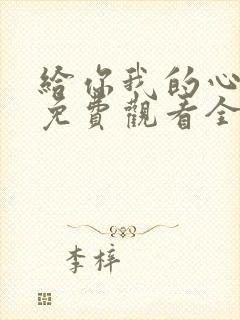 給你我的心
免費觀看全
李梓